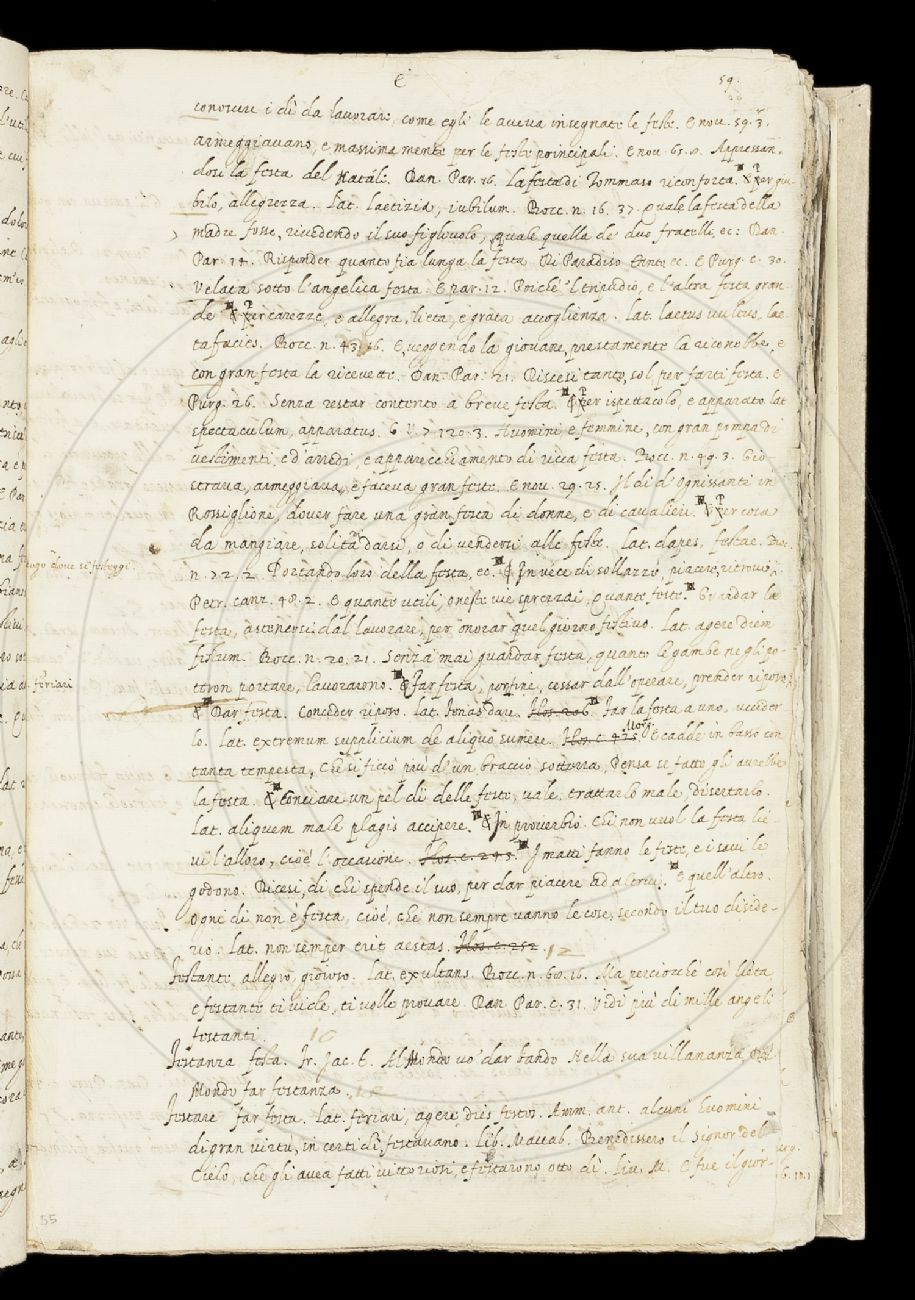 e
59.
conoscere i dì da lavorare, come egli le aveva insegnato le feste. E nou. 59. 3.
armeggiavano, e massimamente per le feste principali. E nou. 65. 8. Appressan-
dosi la festa del Natale. Dan. Par. 16. La festa di Tommaso riconforta. § Per giu-
bilo, allegrezza. Lat. laetizia, iubilum. Bocc. n. 16. 37. Quale la festa della
madre fosse, rivedendo il suo figlovolo, quale quella de due fratelli, ec: Dan.
Par. 14. Risponder quanto fia lunga la festa Di Paradiso tanto, ec. E Purg. c. 30.
Velata sotto l'angelica festa. E par. 12. Poichè 'l tripudio, e l'altra festa gran-
de § Per carezze, e allegra, lieta, e grata accoglienza. Lat. laetus vultus, lae-
ta facies. Bocc. n. 43. 16. E, veggendo la giovane, prestamente la riconobbe, e
con gran festa la ricevette. Dan. Par. 21. Discesi tanto, sol per farti festa. E
Purg. 26. Senza restar contento a breve festa. § Per ispettacolo, e apparato. lat
spectaculum, apparatus. G. V. 7. 120. 3. Huomini, e femmine, con gran pompa di
vestimenti, e d'arredi, e apparecchiamento di ricca festa. Bocc. n. 49. 3. Gio-
strava, armeggiava, e faceva gran feste. E nou. 29. 25. Il dì d'Ognissanti in
Rossiglione, dover fare una gran festa di donne, e di cavalieri. § Per cosa
da mangiare, solita darsi, o di vendersi alle feste. Lat. dapes, festae. Boc.
n. 72. 2. Portando loro della festa, ec. § In vece di sollazzo, piacere, ritrovi
luogo dove si festeggi.
Petr. canz. 48. 2. E quante utili, oneste vie sprezzai, Quante feste. Guardar la
festa, astenersi dal lavorare, per onorar quel giorno festivo. Lat. agere diem
festum. Bocc. n. 20. 21. Senza mai guardar festa, quanto le gambe ne gli po-
teron portare, lavorarono. § Far festa, por fine, cessar dall'operare, prender riposo
feriari
§ Dar festa. Conceder riposo. Lat. Ionas dare. Flos. 206. Far la festa a uno, uccider
lo. Lat. extremum supplicium de aliquo sumere. Flos. c. 425. Morg. E cadde in basso con
tanta tempesta, Che si ficcò più d'un braccio sotterra, Pensa se fatto gli aurebbe
la festa. § Conciare un pel dì delle feste, vale, trattarlo male, disertarlo.
Lat. aliquem male plagis accipere. § In proverbio. Chi non vuol la festa lie-
vi l'alloro, cioè l'occasione. Flos. c. 293. I matti fanno le feste, e i savi le
godono. Dicesi, di chi spende il suo, per dar piacere ad altrui. E quell'altro.
Ogni dì non è festa, cioè, che non sempre vanno le cose, secondo il tuo deside-
rio. Lat. non semper erit aestas. Flos. c. 252. 12
Festante allegro, gioioso. Lat. exultans. Bocc. n. 60. 16. Ma perciocchè così lieta,
e festante ti vide, ti volle provare. Dan. Par. c. 31. Vidi più di mille angeli
festanti. 16
Festanza festa. Fr. Jac. t. Al Mondo vo' dar bando Nella sua villananza, Col
Mondo far festanza. 12
Festare Far festa. Lat. feriari, agere dies festos. Amm. ant. alcuni huomini
di gran virtù, in certi dì festavano. Lib. Maccab. Benedissero il Signor del
Cielo, che gli avea fatti vittoriosi, e festarono otto dì. Liv. M. E fue il gior-
55